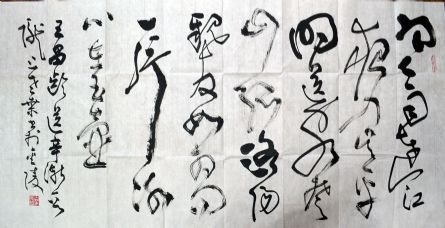 寒雨连江
夜入吴平
明送客楚
山孤洛阳
親友如相问
一片冰
心在玉壶
王昌龄送辛渐